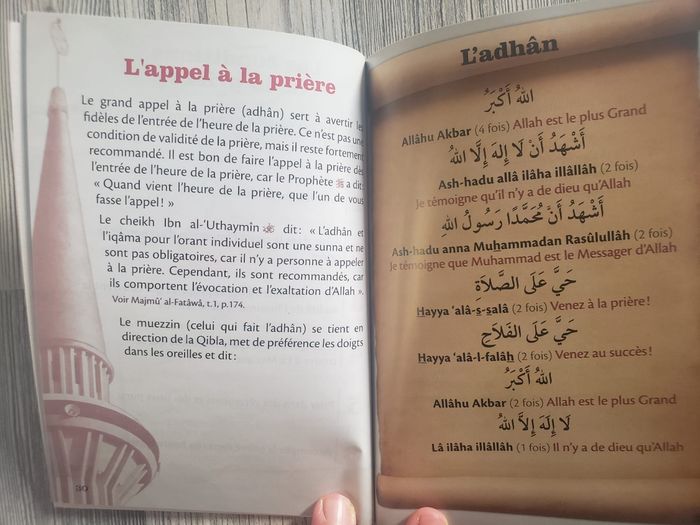 L'appel à la prière
Le grand appel à la prière (adhân) sert à avertir les
fidèles de l'entrée de l'heure de la prière. Ce n'est pas une
condition de validité de la prière, mais il reste fortement
recommandé. Il est bon de faire l'appel à la prière dès
l'entrée de l'heure de la prière, car le Prophète ﷺ a dit
« Quand vient l'heure de la prière, que l'un de vous
fasse l'appel ! »
Le cheikh Ibn al-'Uthaymin dit : « L'adhân et
l'iqâma pour l'orant individuel sont une sunna et ne
sont pas obligatoires, car il n'y a personne à appeler
à la prière. Cependant, ils sont recommandés, car
ils comportent l'évocation et l'exaltation d'Allah ».
Voir Majmû' al-Fatâwâ, t.1, p.174.
Le muezzin (celui qui fait l'adhân) se tient en
direction de la Qibla, met de préférence les doigts
dans les oreilles et dit :
30
L'adhân
اللهُ أَكْبَرُ
Allâhu Akbar (4 fois) Allah est le plus Grand
أَشْهَدُ أَنْ لَا إِلَهَ إِلَّا اللهُ
Ash-hadu allâ ilâha illâllâh (2 fois)
Je témoigne qu'il n'y a de dieu qu'Allah
أَشْهَدُ أَنَّ مُحَمَّدًا رَسُولُ اللهِ
Ash-hadu anna Muhammadan Rasûlullâh (2 fois)
Je témoigne que Muhammad est le Messager d'Allah
حَيَّ عَلَى الصَّلَاةِ
Hayya 'alâ-s-salâ (2 fois) Venez à la prière !
حَيَّ عَلَى الفَلَاحِ
Hayya 'alâ-l-falâh (2 fois) Venez au succès !
اللهُ أَكْبَرُ
Allâhu Akbar (2 fois) Allah est le plus Grand
لَا إِلَهَ إِلاَّ اللهُ
Lâ ilâha illâllâh (1 fois) Il n'y a de dieu qu'Allah